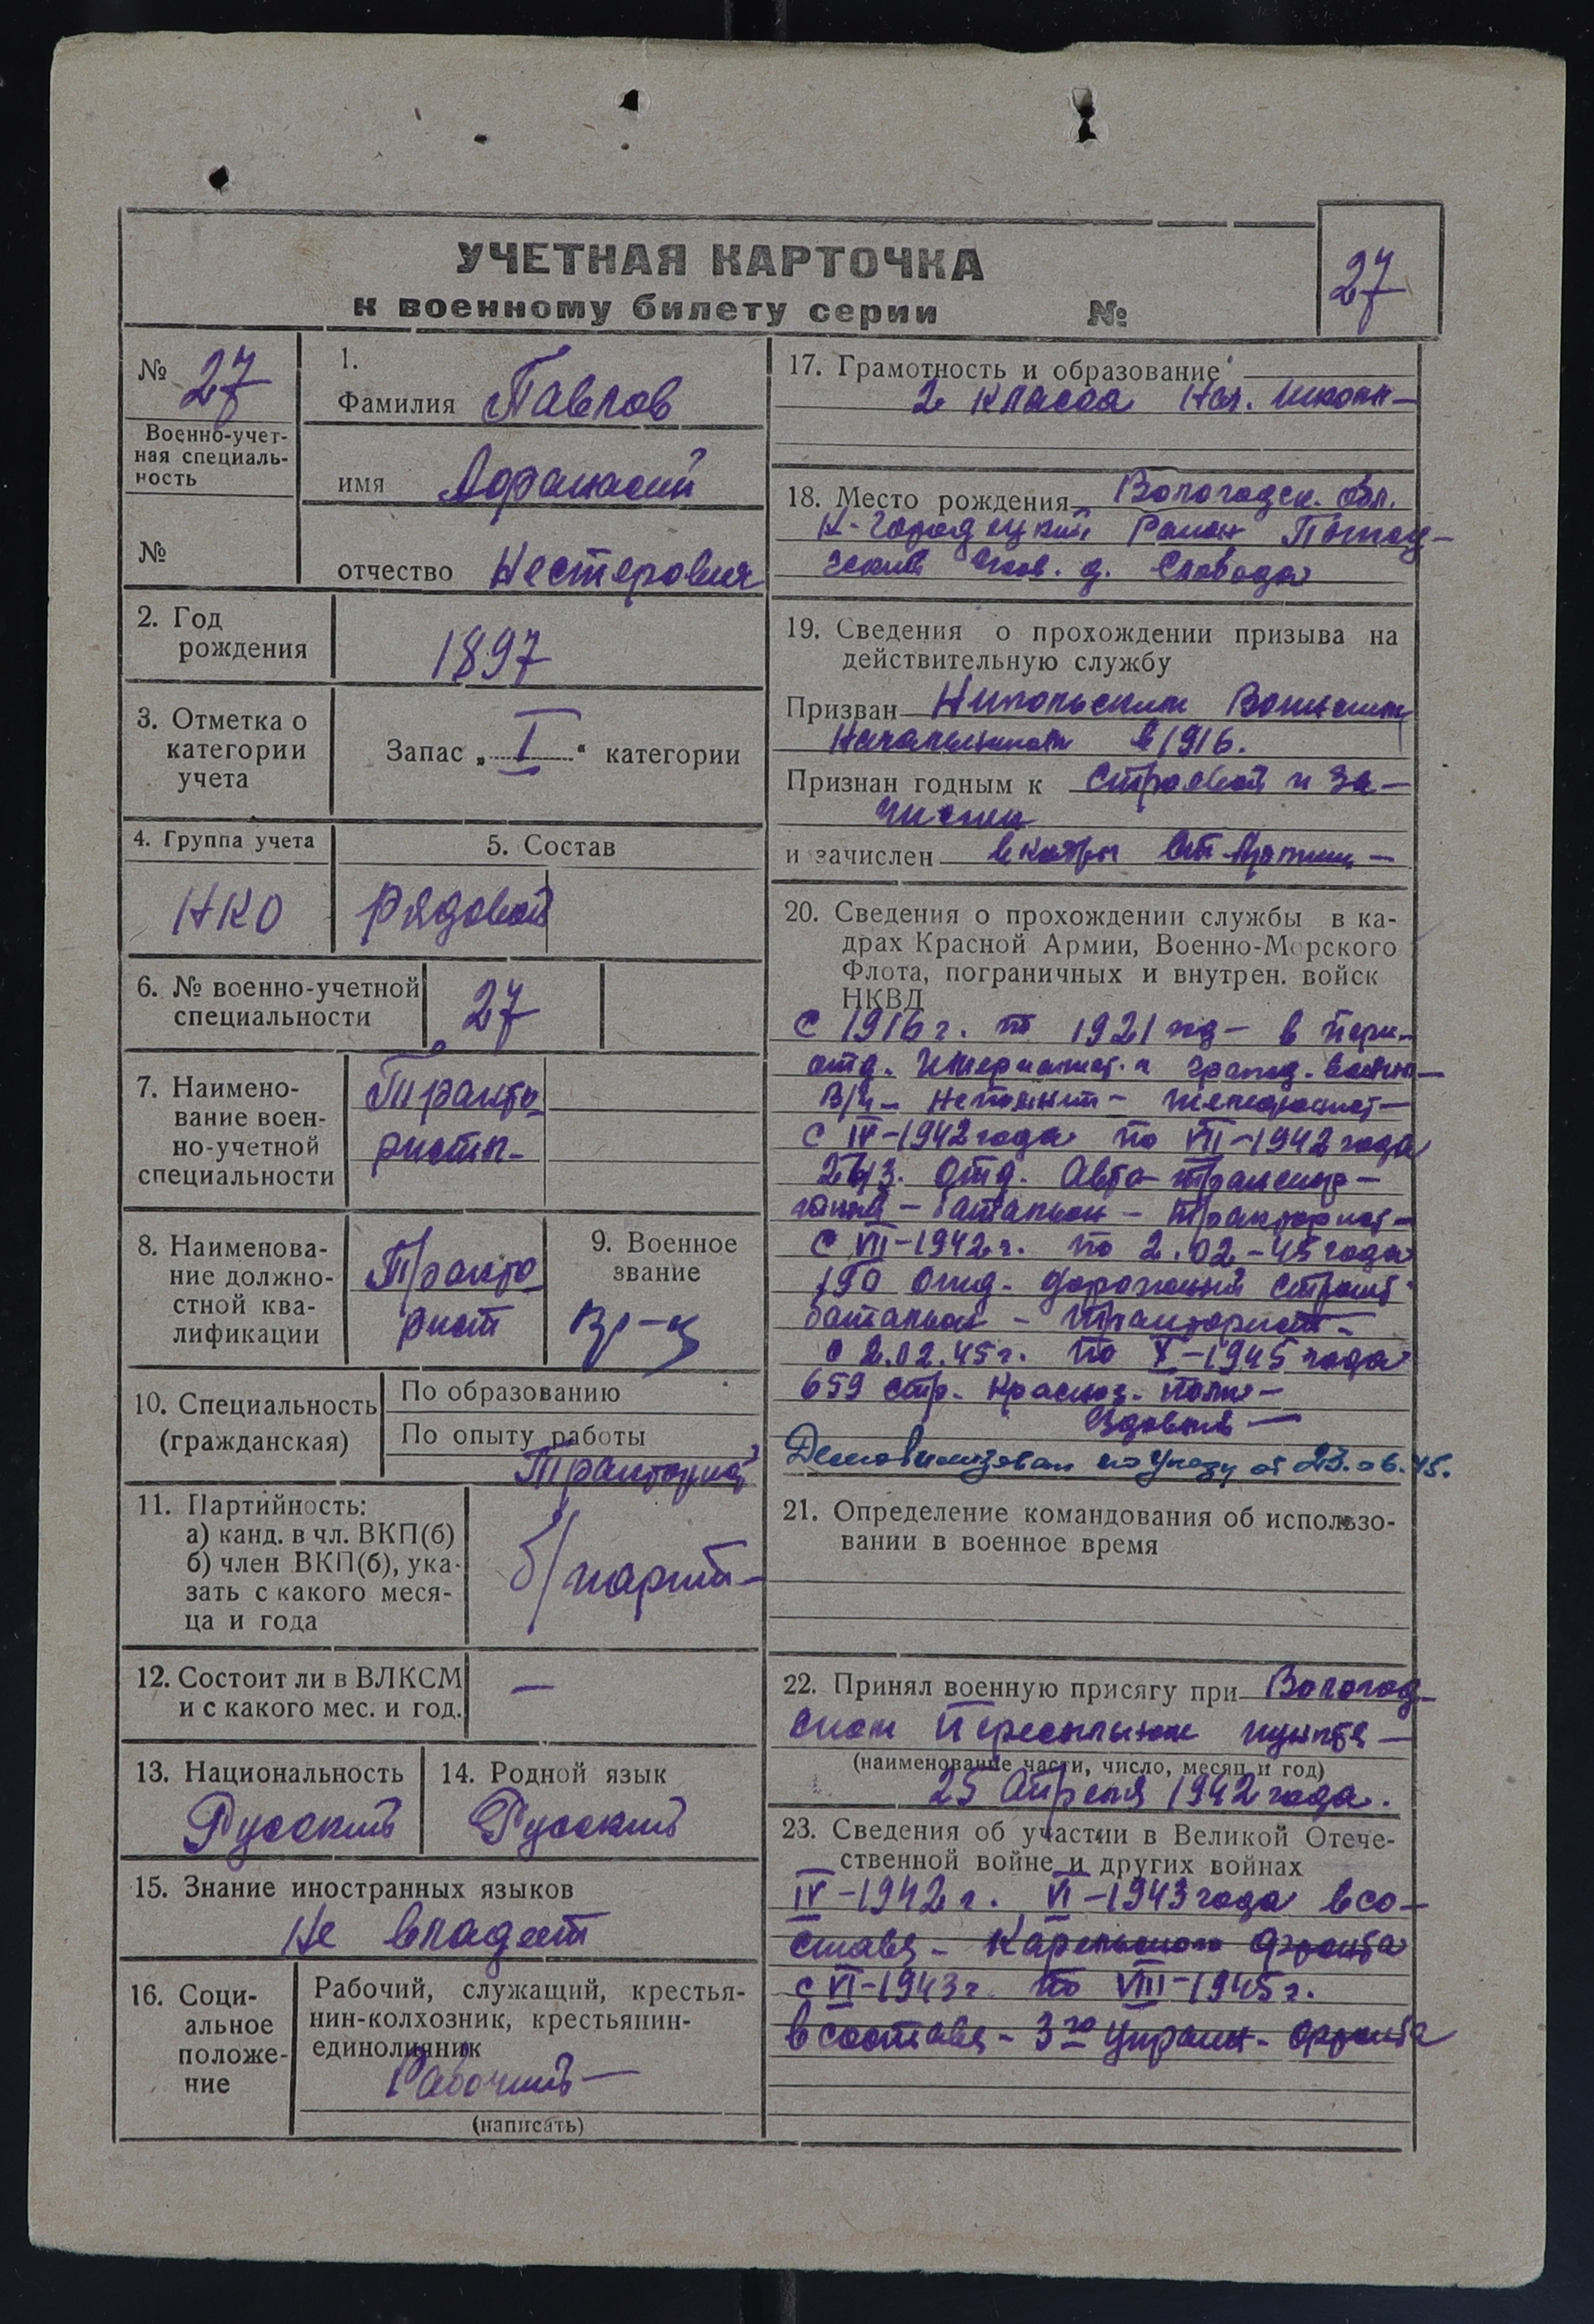 УЧЕТНАЯ КАРТОЧКА
к военному билету серии №
27
№ 27
Военно-учет-
ная специаль-
ность
№
1.
Фамилия Павлов
имя Афанасий
отчество Нестерович
2. Год
рождения
1897
3. Отметка о
категории
учета
Запас „ I “ категории
4. Группа учета
НКО
5. Состав
Рядовой
6. № военно-учетной
специальности
27
7. Наимено-
вание воен-
но-учетной
специальности
Тракто
ристы-
8. Наименова-
ние должно-
стной ква-
лификации
Тракто
рист
9. Военное
звание
10. Специальность
(гражданская)
По образованию
По опыту работы
Тракторист
11. Партийность:
а) канд. в чл. ВКП(б)
б) член ВКП(б), ука-
зать с какого меся-
ца и года
б/парти-
12. Состоит ли в ВЛКСМ
и с какого мес. и год.
—
13. Национальность
Русский
14. Родной язык
Русский
15. Знание иностранных языков
Не владеет
16. Соци-
альное
положе-
ние
Рабочий, служащий, крестья-
нин-колхозник, крестьянин-
единоличник
Рабочий —
(написать)
17. Грамотность и образование
2 класса Нач. школы-
18. Место рождения Вологодск. обл.
К-Городецкий Район
д. Слобода
19. Сведения о прохождении призыва на
действительную службу
Призван Никольским Воинским
Начальником в 1916.
Признан годным к строевой и за-
числен
и зачислен в кадры
20. Сведения о прохождении службы в ка-
драх Красной Армии, Военно-Морского
Флота, пограничных и внутрен. войск
НКВД
С 1916 г. по 1921 год - в пери-
отд. Империалист. и гражд. войны-
В/ч - Непомнит -
С IV-1942 года по VII-1942 года
отд. Авто-транспор-
тный - батальон - тракторист-
С VII-1942 г. по 2.02-45 года
190 отд. дорожный строит
батальон - тракторист-
с 2.02.45 г. по X-1945 года
659 стр. Краснозн. полк-
Ездовый —
Демобилизован по Указу от 23.06.45.
21. Определение командования об использо-
вании в военное время
22. Принял военную присягу при Вологод-
ском Пересыльном пункте —
(наименование части, число, месяц и год)
25 Апреля 1942 года.
23. Сведения об участии в Великой Отече-
ственной войне и других войнах
IV-1942 г. VI-1943 года в со-
ставе - Карельского фронта
с VI-1943 г по VIII-1945 г.
в составе - 3го Украин- фронта